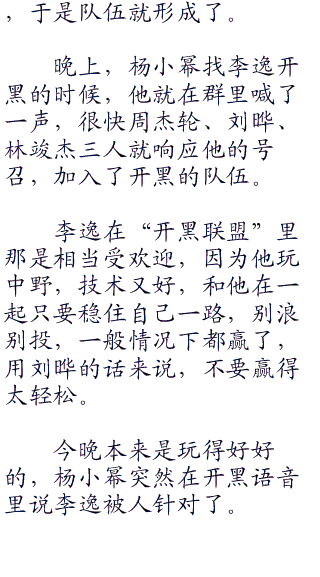 ，于是队伍就形成了。
晚上，杨小幂找李逸开
黑的时候，他就在群里喊了
一声，很快周杰轮、刘晔、
林竣杰三人就响应他的号
召，加入了开黑的队伍。
李逸在“开黑联盟”里
那是相当受欢迎，因为他玩
中野，技术又好，和他在一
起只要稳住自己一路，别浪
别投，一般情况下都赢了，
用刘晔的话来说，不要赢得
太轻松。
今晚本来是玩得好好
的，杨小幂突然在开黑语音
里说李逸被人针对了。